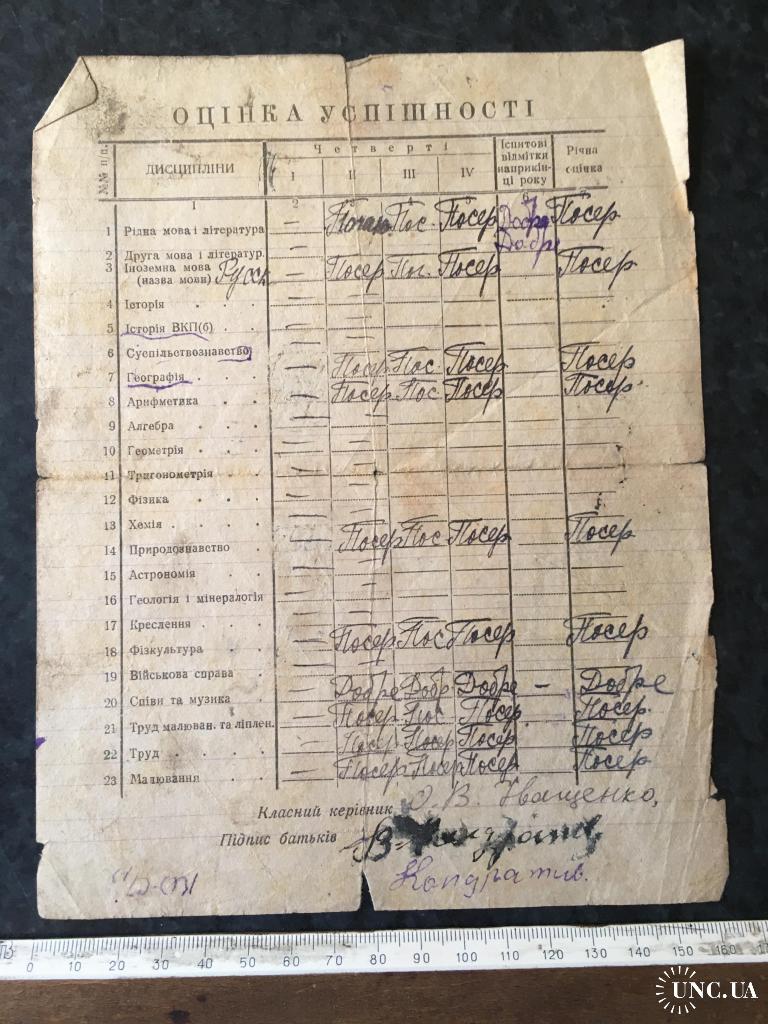 ОЦІНКА УСПІШНОСТІ
№№ п/п. ДИСЦИПЛІНИ Четверті I II III IV Іспитові відмітки наприкінці року Річна оцінка
1 2
1 Рідна мова і література — Пос. Посер Добре Посер
2 Друга мова і літератур. — Добре
3 Іноземна мова (назва мови) Русск — Посер Пос. Посер Посер
4 Історія . . —
5 Історія ВКП(б) . . —
6 Суспільствознавство —
7 Географія . . — Посер Пос. Посер Посер
8 Арифметика . . — Посер Пос Посер Посер
9 Алгебра . . —
10 Геометрія . . —
11 Тригонометрія . —
12 Фізика . . . —
13 Хемія . . . —
14 Природознавство . — Посер Пос Посер Посер
15 Астрономія . . —
16 Геологія і мінералогія —
17 Креслення . . . —
18 Фізкультура . . — Посер Пос Посер Посер
19 Військова справа . —
20 Співи та музика . — Добре Добр Добре — Добре
21 Труд малюван. та ліплен. — Посер Пос Посер Посер
22 Труд . . . — Посер Посер Посер Посер
23 Малювання . . — Посер Посер Посер Посер
Класний керівник О. В. Іващенко,
Підпис батьків
Кондратив.
0 10 20 30 40 50 60 70 80 90 100 110 120 130 140 150 160 17
UNC.UA